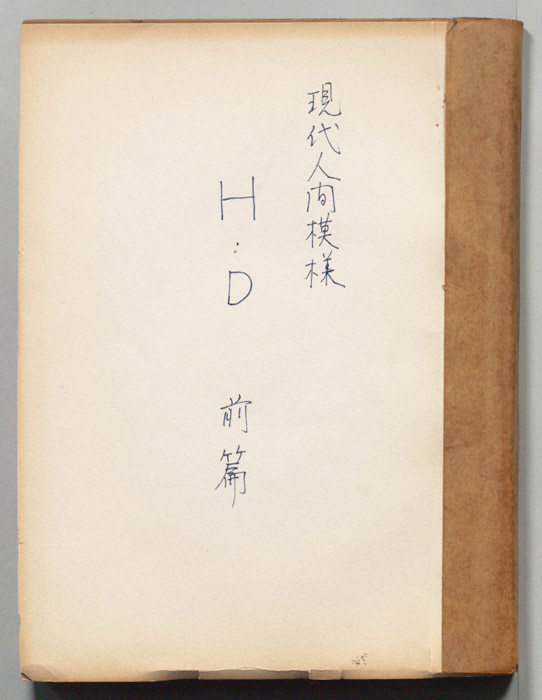 現代人间模様
H・D 前篇